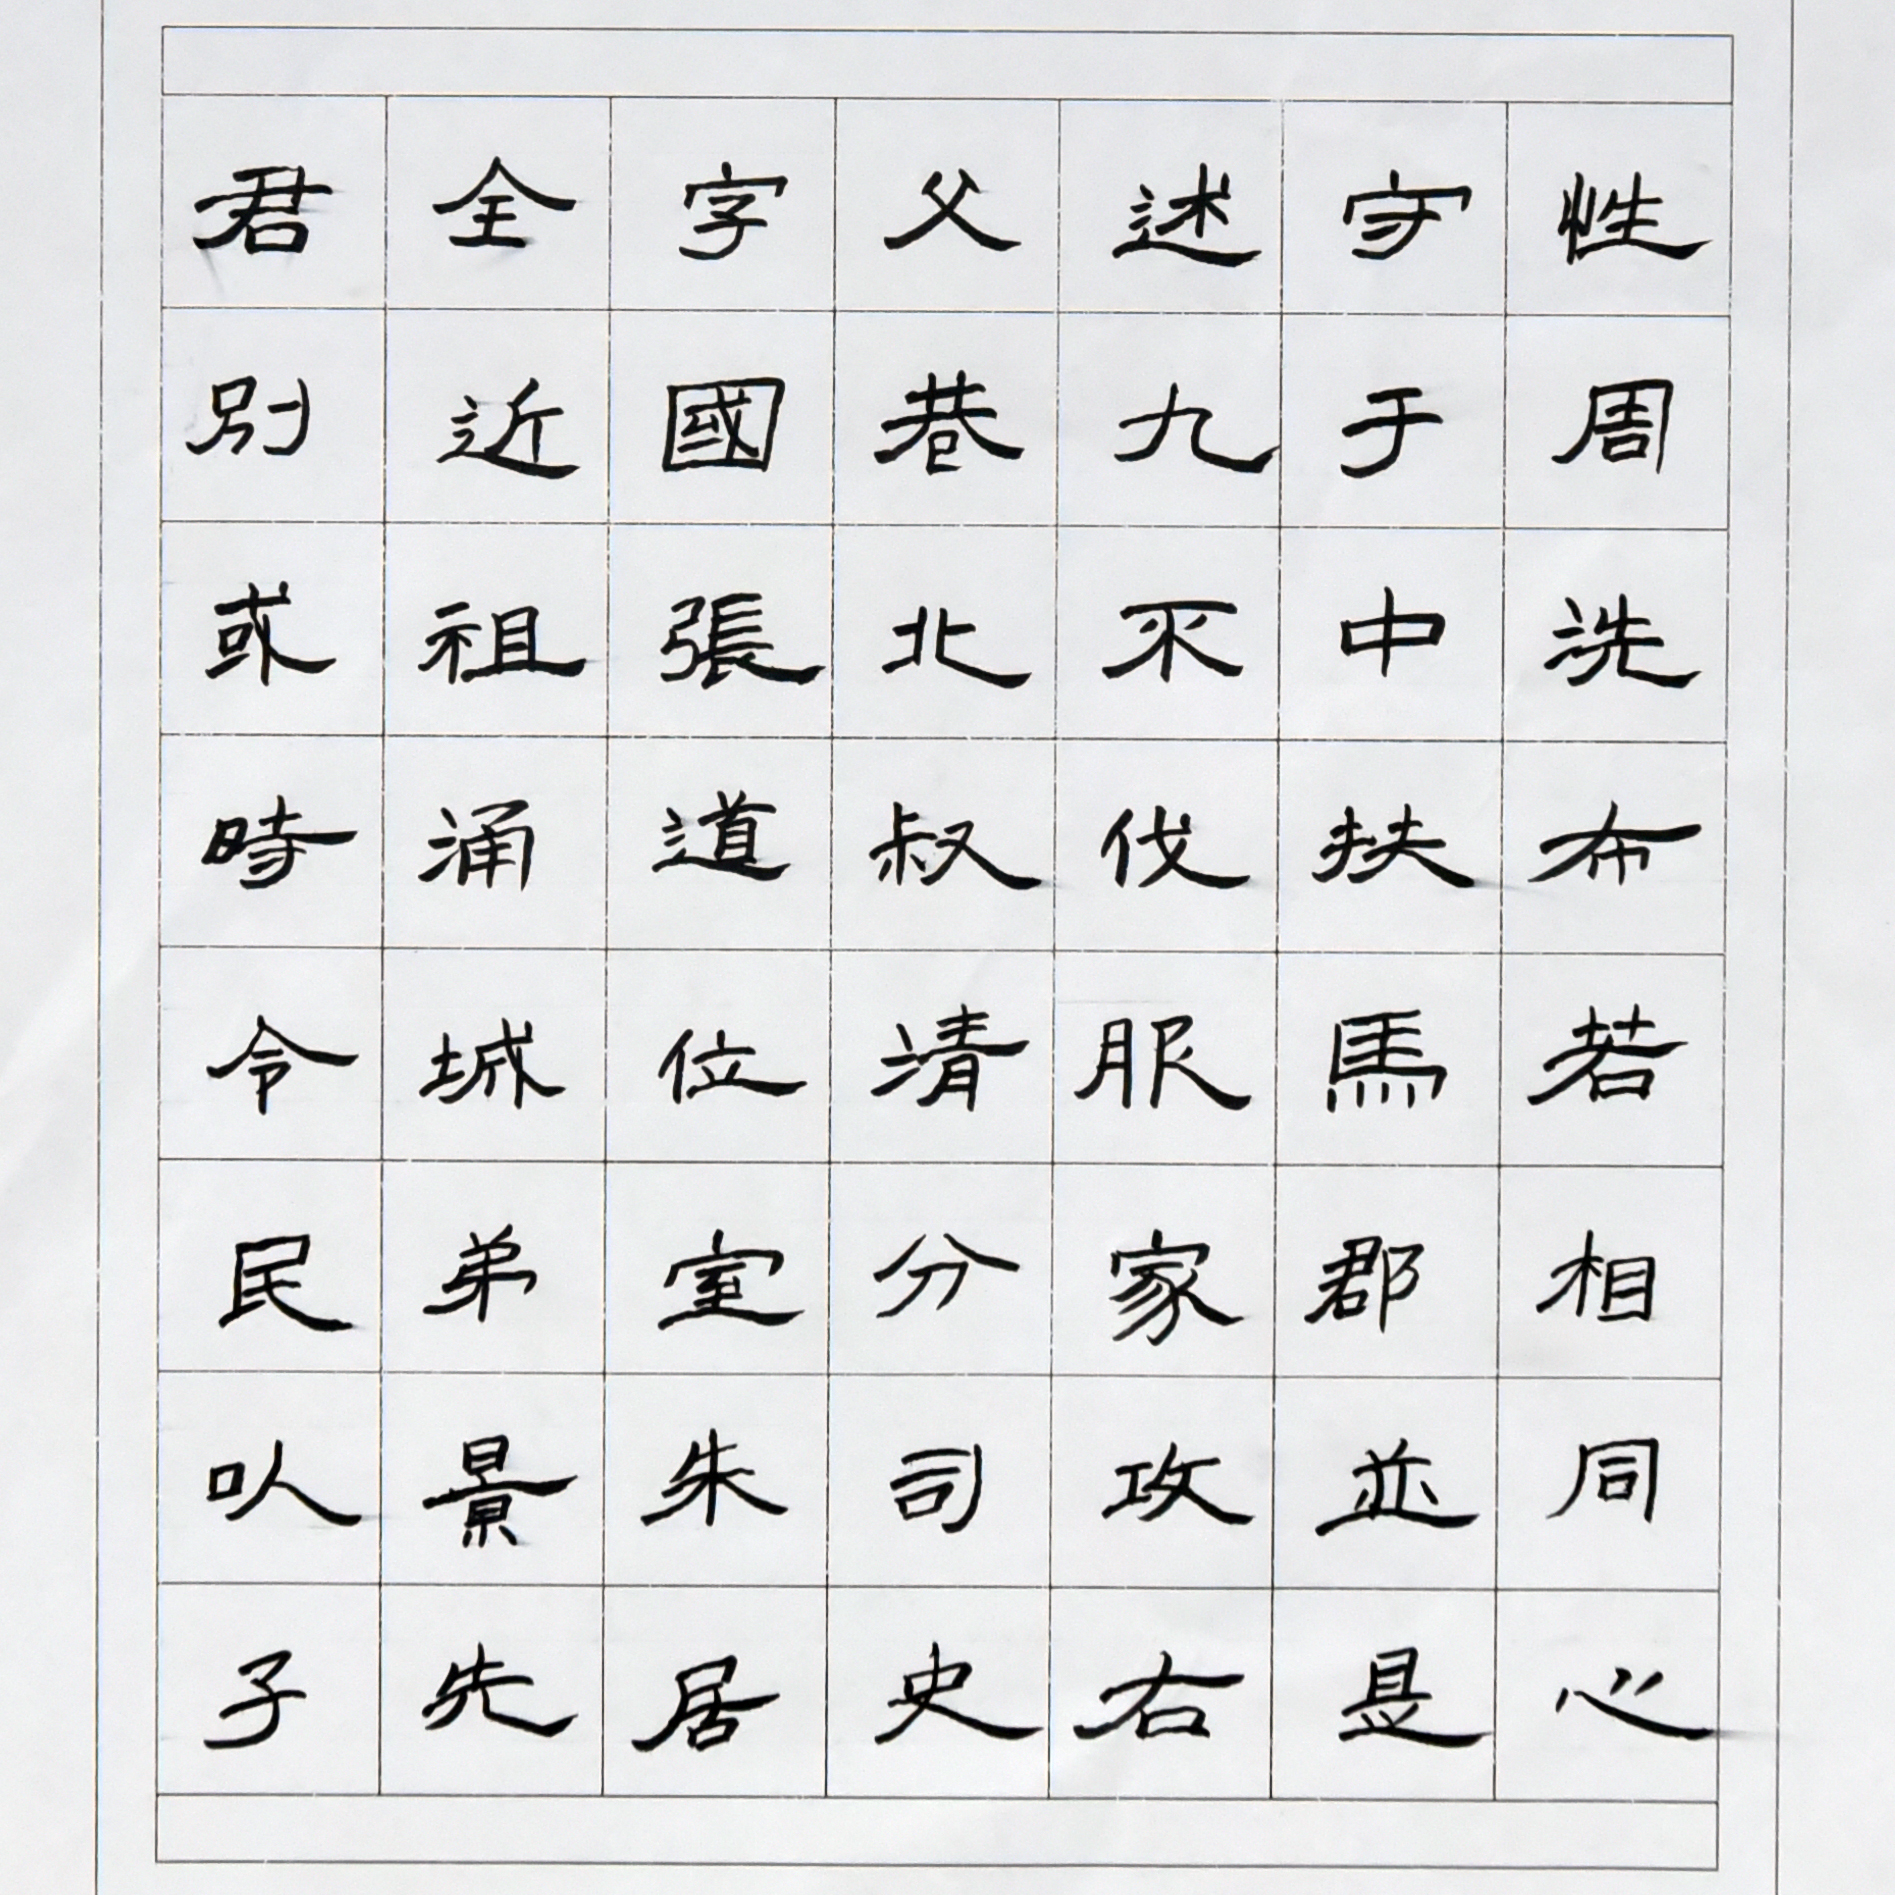 性周洗布若相同心
守于中扶馬郡並是
述九不伐服家攻右
父巷北叔清分司史
字國張道位室朱居
全近祖涌城弟景先
君別或時令民以子